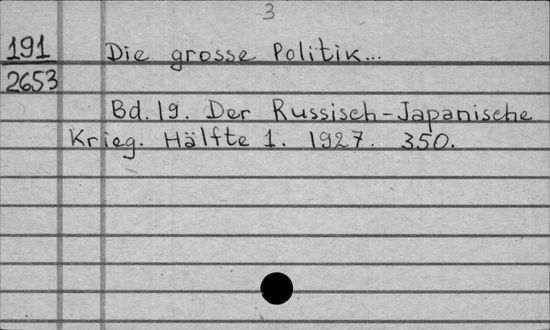 3
191
2653
Die grosse Politik...
Bd. 19. Der Russisch-Japanische
Krieg. Hälfte 1. 1927. 350.